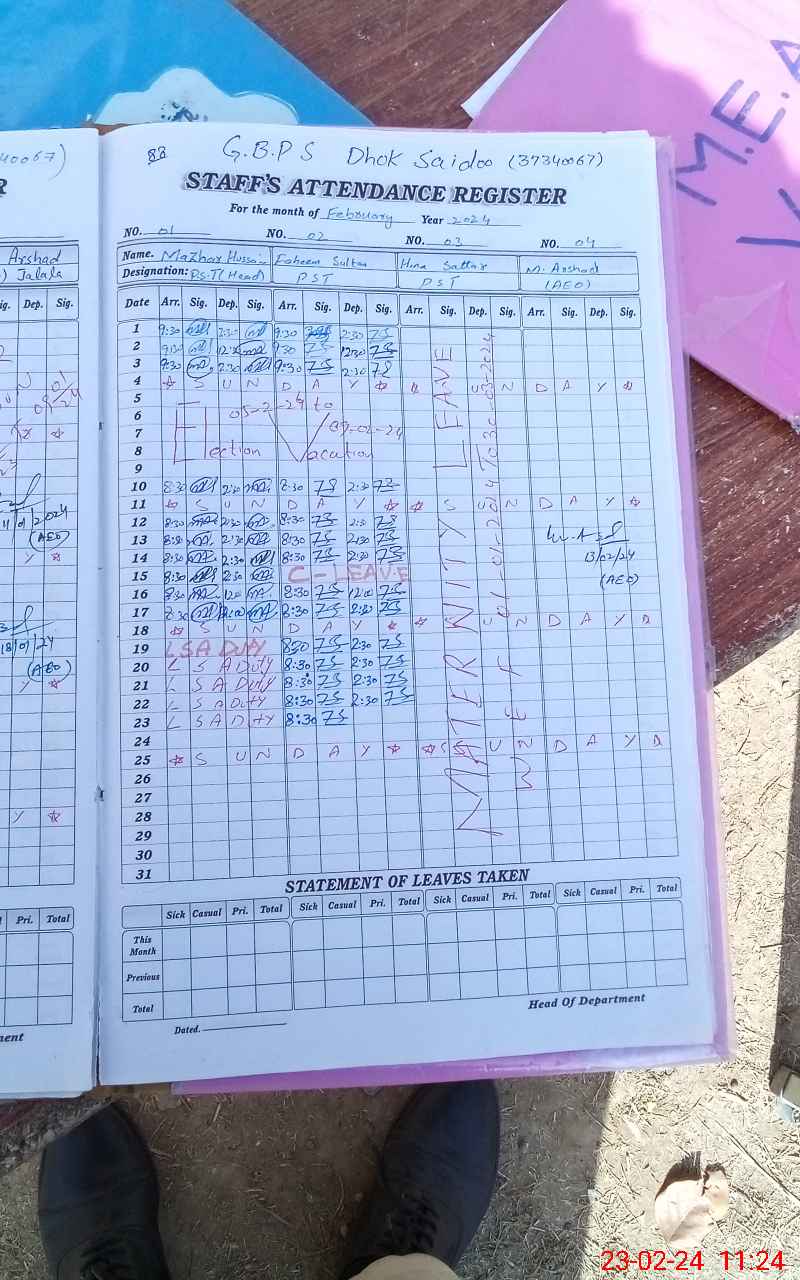 88 G.B.P.S Dhok Saidoo (37340067)
STAFF'S ATTENDANCE REGISTER
For the month of February Year 2024
NO. 01 NO. 02 NO. 03 NO. 04
Name. Mazhar Hussain Faheem Sultan Hina Sattar M. Arshad
Designation: P.S.T (Head) PST PST (AEO)
Date Arr. Sig. Dep. Sig. Arr. Sig. Dep. Sig. Arr. Sig. Dep. Sig. Arr. Sig. Dep. Sig.
1 9:30 2:30 9:30 2:30
2 9:30 12:30 9:30 12:30
3 9:30 2:30 9:30 2:30
4 S U N D A Y S U N D A Y
5
6 05-2-24 to
7 09-02-24
8 Election Vacation
9
10 8:30 2:30 8:30 2:30
11 S U N D A Y S U N D A Y
12 8:30 2:30 8:30 2:30
13 8:30 2:30 8:30 2:30
14 8:30 2:30 8:30 2:30
13/02/24
15 8:30 2:30 C-LEAVE
(AEO)
16 8:30 12:00 8:30 12:00
17 8:30 8:30
18 S U N D A Y S U N D A Y
19 LSA DUTY 8:30 2:30
20 L S A Duty 8:30 2:30
21 L S A Duty 8:30 2:30
22 L S A Duty 8:30 2:30
23 L S A Duty 8:30
24
25 S U N D A Y S U N D A Y
26
27
28
29
30
31
MATERNITY LEAVE
W.E.F 01-01-2024 To 30-03-2024
STATEMENT OF LEAVES TAKEN
Sick Casual Pri. Total Sick Casual Pri. Total Sick Casual Pri. Total Sick Casual Pri. Total
This Month
Previous
Total
Dated. Head Of Department
40067)
R
Arshad
Jalala
ig. Dep. Sig.
01/24
2024
(AEO)
Y
18/01/24
(AEO)
Y
Y
Pri. Total
ment
M.E.A
23-02-24 11:24